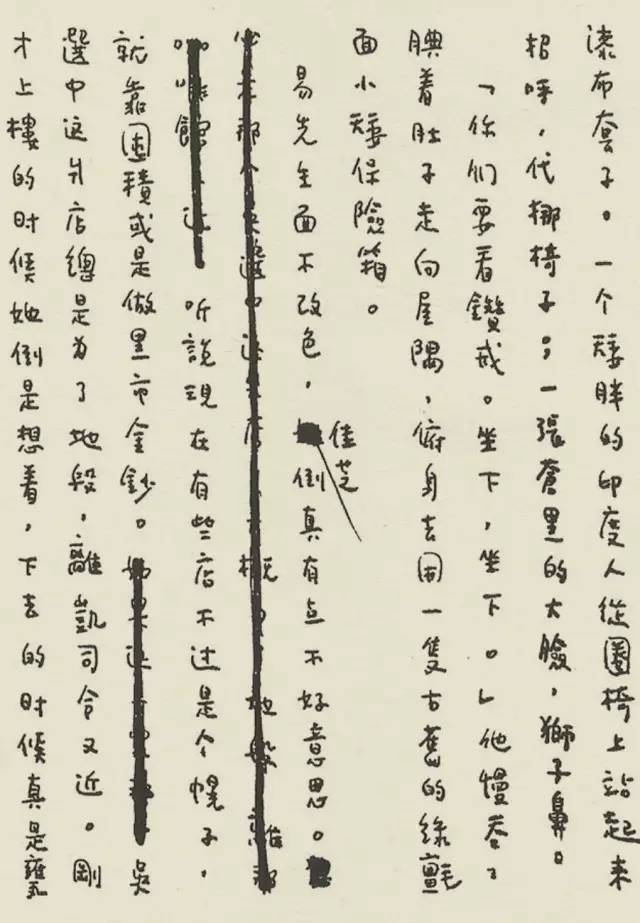 漆布套子。一个矮胖的印度人從圈椅上站起来
招呼，代挪椅子；一張蒼黑的大臉，獅子鼻。
「你们要看鑽戒。坐下，坐下。」他慢吞々
腆着肚子走向屋隅，俯身去开一隻古舊的綠氈
面小矮保險箱。
易先生面不改色，佳芝倒真有点不好意思。
听說現在有些店不过是个幌子，
就靠囤積或是做黑市金鈔。吳
選中这爿店總是为了地段，離凱司令又近。剛
才上樓的时候她倒是想着，下去的时候真是甕